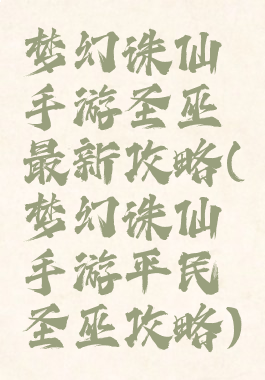 梦幻诛仙
手游圣巫
最新攻略(
梦幻诛仙
手游平民
圣巫攻略)